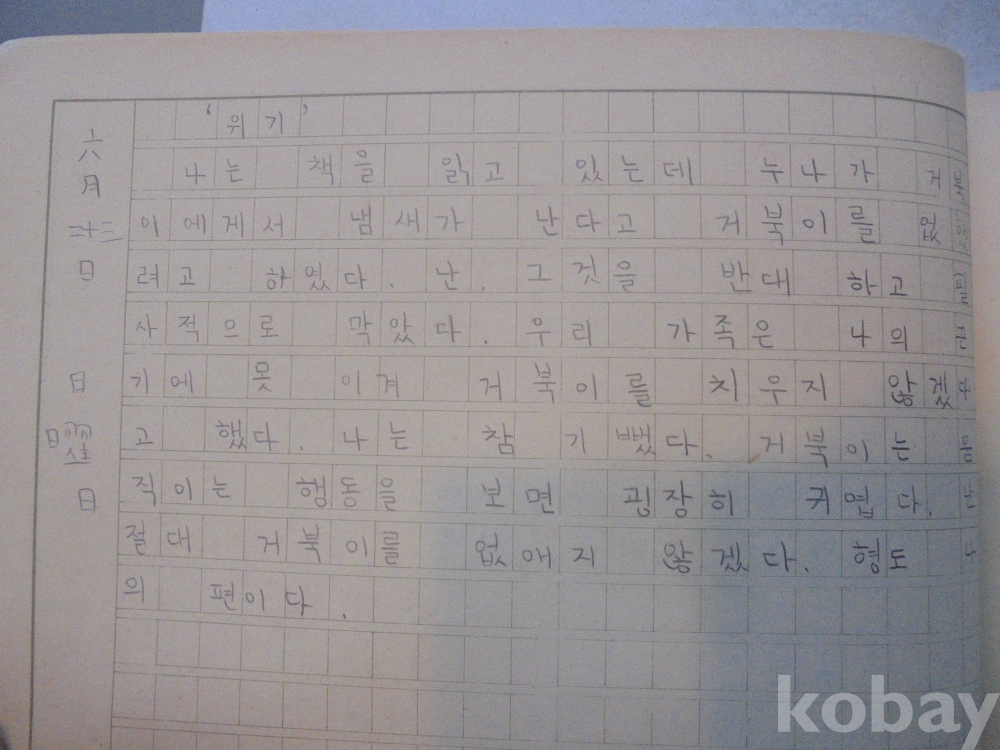 六月 二十三日 日曜日
'위기'
나는 책을 읽고 있는데 누나가 거북
이에게서 냄새가 난다고 거북이를 없
려고 하였다. 난. 그것을 반대하고 필
사적으로 막았다. 우리 가족은 나의 끈
기에 못 이겨 거북이를 치우지 않겠다
고 했다. 나는 참 기뻤다. 거북이는 움
직이는 행동을 보면 굉장히 귀엽다. 난
절대 거북이를 없애지 않겠다. 형도 나
의 편이다.
kobay